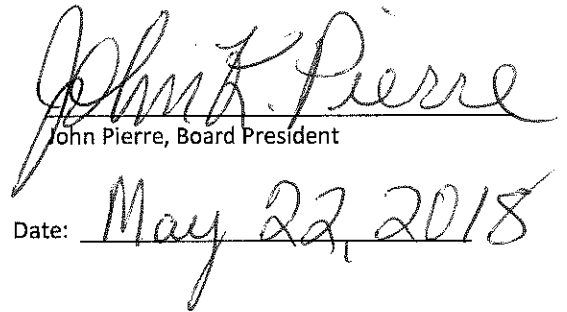 John K. Pierre
John Pierre, Board President
Date: May 22, 2018